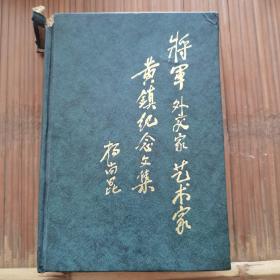 將軍外交家艺术家
黄镇纪念文集
杨尚昆